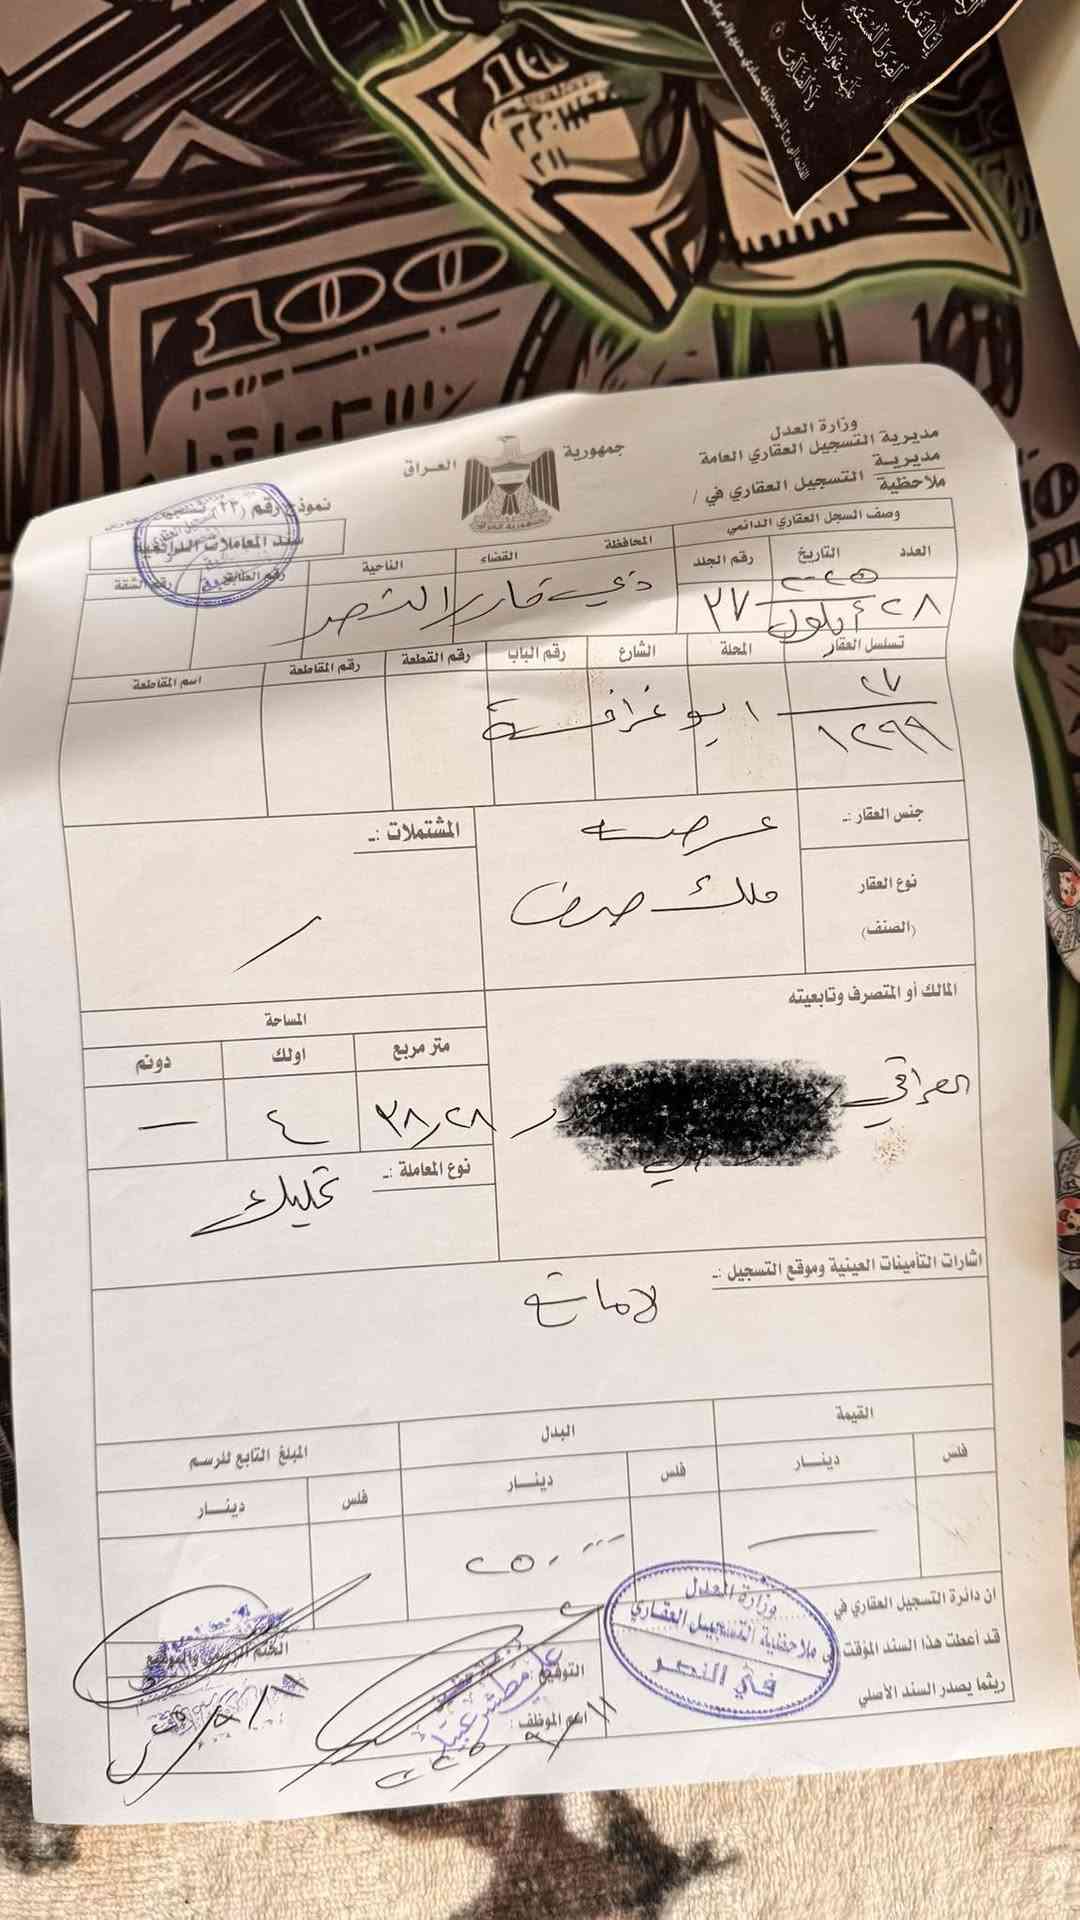 100
10
وزارة العدل
مديرية التسجيل العقاري العامة
مديرية
ملاحظية التسجيل العقاري في /
جمهورية العراق
نموذج رقم (٢٣)
سند المعاملات
وصف السجل العقاري الدائمي
المحافظة القضاء الناحية رقم الطابق رقم الشقة
العدد التاريخ رقم الجلد
٢٨ أيلول ٢٠٢٥ ٣٧ ذي قار / النصر
تسلسل العقار المحلة الشارع رقم الباب رقم القطعة رقم المقاطعة اسم المقاطعة
٢٧
١٢٩٩
ابو غرافة
جنس العقار :ـ عرصه المشتملات :ـ
نوع العقار ملك صرف
(الصنف)
المالك أو المتصرف وتابعيته
المساحة
متر مربع اولك دونم
العراقي
٣٨,٢٨ ٤ —
نوع المعاملة :ـ تمليك
اشارات التأمينات العينية وموقع التسجيل :ـ
لامانع
القيمة البدل المبلغ التابع للرسم
فلس دينـــار فلس دينـــار فلس دينـــار
ان دائرة التسجيل العقاري في
قد أعطت هذا السند المؤقت
ريثما يصدر السند الأصلي
وزارة العدل
ملاحظية التسجيل العقاري
في النصر
التوقيع :
اسم الموظف :
الختم الرسمي والتوقيع